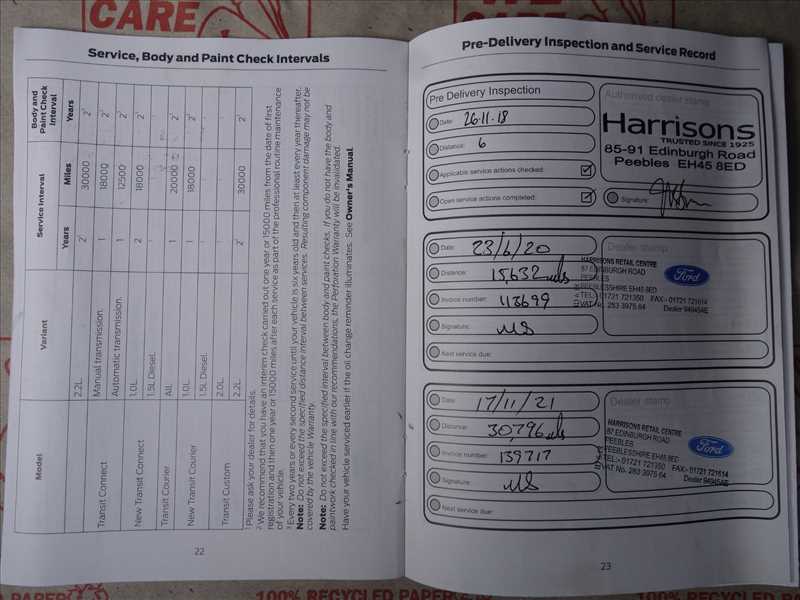 CARE
Service, Body and Paint Check Intervals
Model
Variant
Service Interval
Body and Paint Check Interval
Years
Miles
Years
2.2L
2¹
30000
2¹
Transit Connect
Manual transmission.
1
18000
2¹
Automatic transmission.
1
12500
2¹
New Transit Connect
1.0L
2
18000
2¹
1.5L Diesel.
Transit Courier
All.
1
20000
2¹
New Transit Courier
1.0L
1
18000
2¹
1.5L Diesel.
Transit Custom
2.0L
2.2L
2¹
30000
2¹
¹ Please ask your dealer for details.
² We recommend that you have an interim check carried out one year or 15000 miles from the date of first
registration and then one year or 15000 miles after each service as part of the professional routine maintenance
of your vehicle.
³ Every two years or every second service until your vehicle is six years old and then at least every year thereafter.
Note: Do not exceed the specified distance interval between services. Resulting component damage may not be
covered by the vehicle Warranty.
Note: Do not exceed the specified interval between body and paint checks. If you do not have the body and
paintwork checked in line with our recommendations, the Perforation Warranty will be invalidated.
Have your vehicle serviced earlier if the oil change reminder illuminates. See Owner's Manual.
22
Pre-Delivery Inspection and Service Record
Pre Delivery Inspection
Date: 26.11.18
Distance: 6
Applicable service actions checked:
Open service actions completed:
Authorised dealer stamp
Harrisons
TRUSTED SINCE 1925
85-91 Edinburgh Road
Peebles EH45 8ED
Signature:
Date: 23/6/20
Distance: 15,632 mls
Invoice number:
Signature: MS
Next service due:
Dealer stamp
HARRISONS RETAIL CENTRE
87 EDINBURGH ROAD
PEEBLES
PEEBLESSHIRE EH45 8ED
TEL:- 01721 721350 FAX:- 01721 721614
VAT No. 263 3975 64 Dealer 94945AE
Ford
Date: 17/11/21
Distance: 30,796 mls
Invoice number: 139717
Signature: MS
Next service due:
Dealer stamp
HARRISONS RETAIL CENTRE
87 EDINBURGH ROAD
PEEBLES
PEEBLESSHIRE EH45 8ED
TEL:- 01721 721350 FAX:- 01721 721614
VAT No. 263 3975 64 Dealer 94945AE
Ford
23
RECYCLED PAPER
100% RECYCLED PAPER